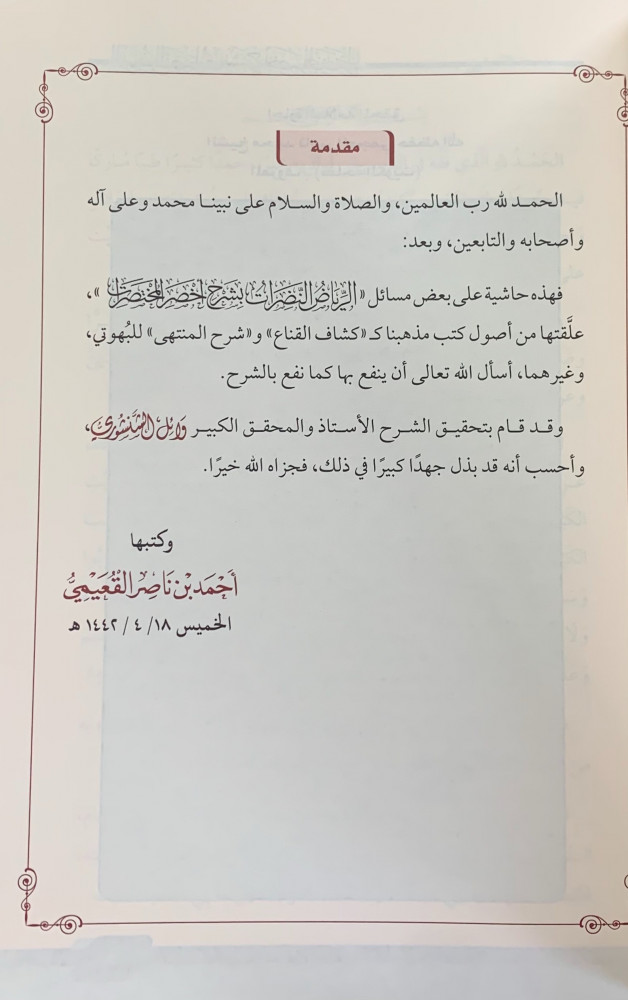 مقدمة
الحمد لله رب العالمين، والصلاة والسلام على نبينا محمد وعلى آله
وأصحابه والتابعين، وبعد:
فهذه حاشية على بعض مسائل «الرِّيَاضُ النَّضِرَاتُ بِشَرْحِ أَخْصَرِ المُخْتَصَرَاتِ»،
علَّقتها من أصول كتب مذهبنا كـ «كشاف القناع» و«شرح المنتهى» للبُهوتي،
وغيرهما، أسأل الله تعالى أن ينفع بها كما نفع بالشرح.
وقد قام بتحقيق الشرح الأستاذ والمحقق الكبير وَائِل الشَّنْشُورِي،
وأحسب أنه قد بذل جهدًا كبيرًا في ذلك، فجزاه الله خيرًا.
وكتبها
أَحْمَد بْن نَاصِر القُعَيْمِيُّ
الخميس ١٨/ ٤ / ١٤٤٢ هـ